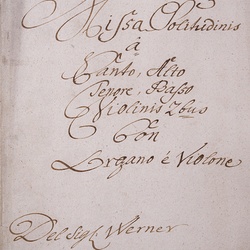 Missa Solitudinis
á
Canto, Alto
Tenore, Basso
Violinis 2bus
Con
Organo è Violone
Del Sigl. Werner